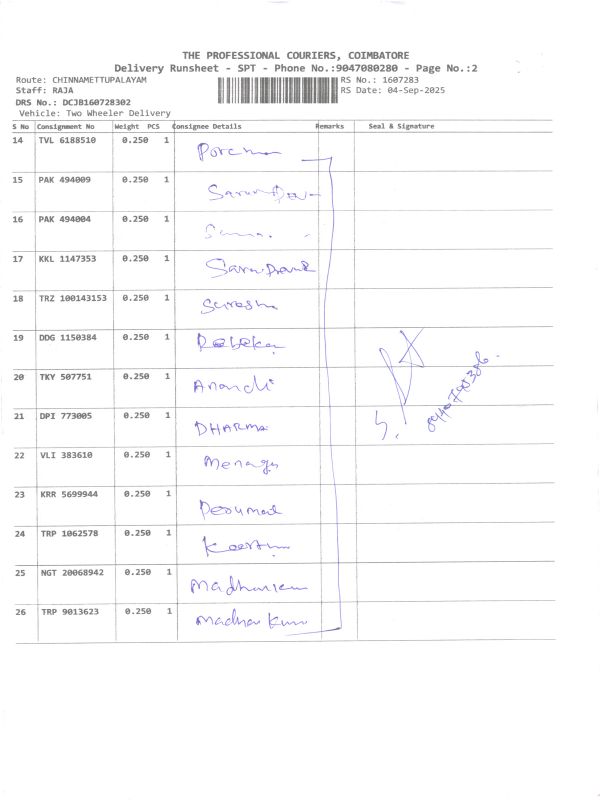 THE PROFESSIONAL COURIERS, COIMBATORE
Delivery Runsheet - SPT - Phone No.:9047080280 - Page No.:2
Route: CHINNAMETTUPALAYAM RS No.: 1607283
Staff: RAJA RS Date: 04-Sep-2025
DRS No.: DCJB160728302
Vehicle: Two Wheeler Delivery
S No Consignment No Weight PCS Consignee Details Remarks Seal & Signature
14 TVL 6188510 0.250 1
15 PAK 494009 0.250 1
16 PAK 494004 0.250 1
17 KKL 1147353 0.250 1
18 TRZ 100143153 0.250 1 Suresh
19 DDG 1150384 0.250 1 Rebeka
20 TKY 507751 0.250 1 Anandi
21 DPI 773005 0.250 1 DHARMA
22 VLI 383610 0.250 1
23 KRR 5699944 0.250 1 Perumal
24 TRP 1062578 0.250 1
25 NGT 20068942 0.250 1
26 TRP 9013623 0.250 1